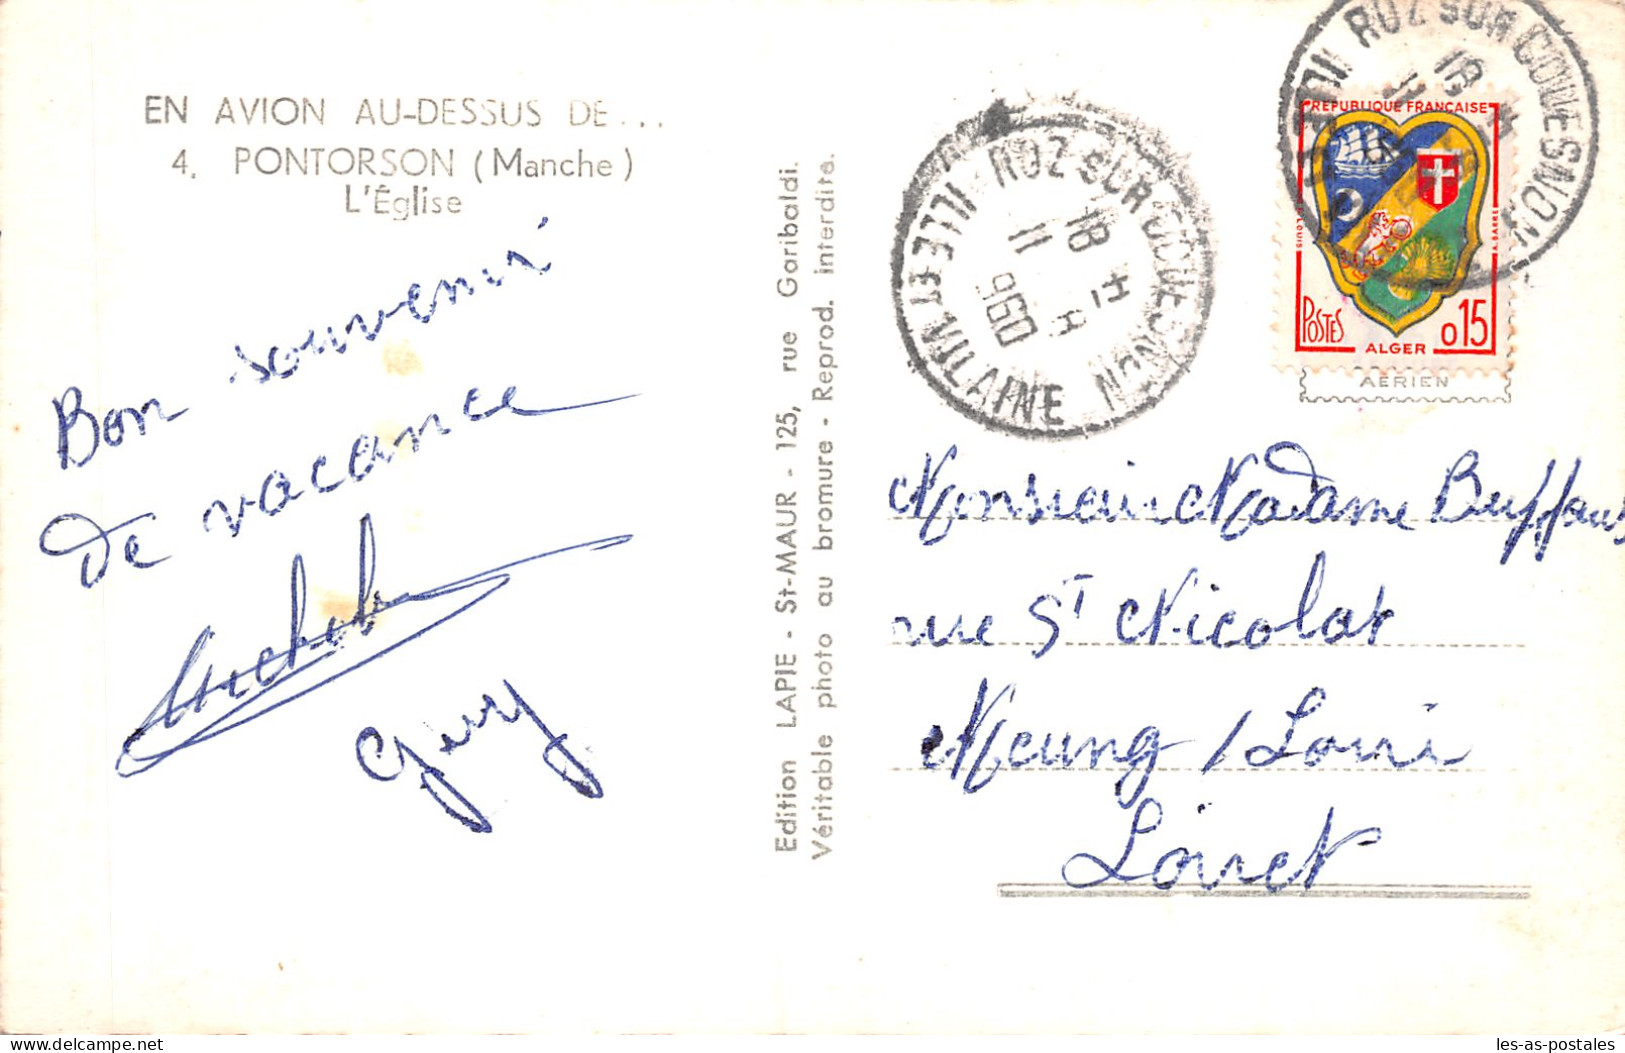 EN AVION AU-DESSUS DE...
4. PONTORSON (Manche)
L'Église
Bon souvenir
de vacance
Michel
Guy
Edition LAPIE - St-MAUR - 125, rue Garibaldi.
Véritable photo au bromure - Reprod. interdite.
ROZ SUR COUESNON
ILLE ET VILAINE
18 H
11
960
ROZ SUR COUESNON
18 H
11
REPUBLIQUE FRANÇAISE
POSTES
0,15
ALGER
AÉRIEN
Monsieur Madame
rue St Nicolas
Meung / Loire
Loiret
les-as-postales